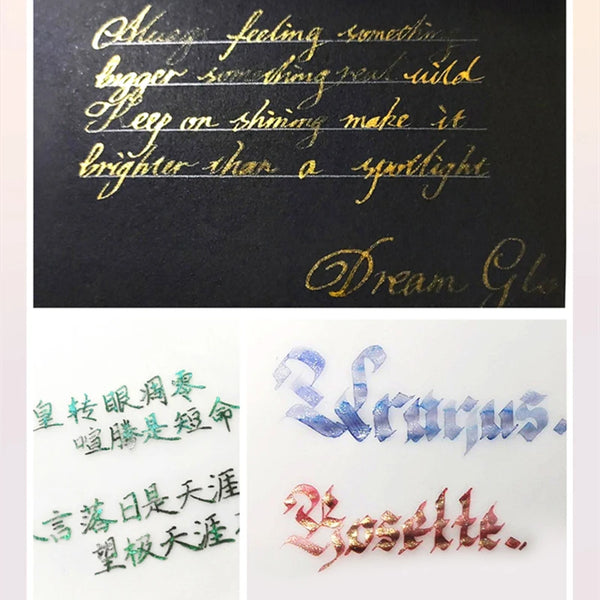 Always feeling something
bigger something real wild
Keep on shining make it
brighter than a spotlight
Dream Glo
皇转眼凋零
喧腾是短命
人言落日是天涯
望极天涯
Uranus.
Rosette..